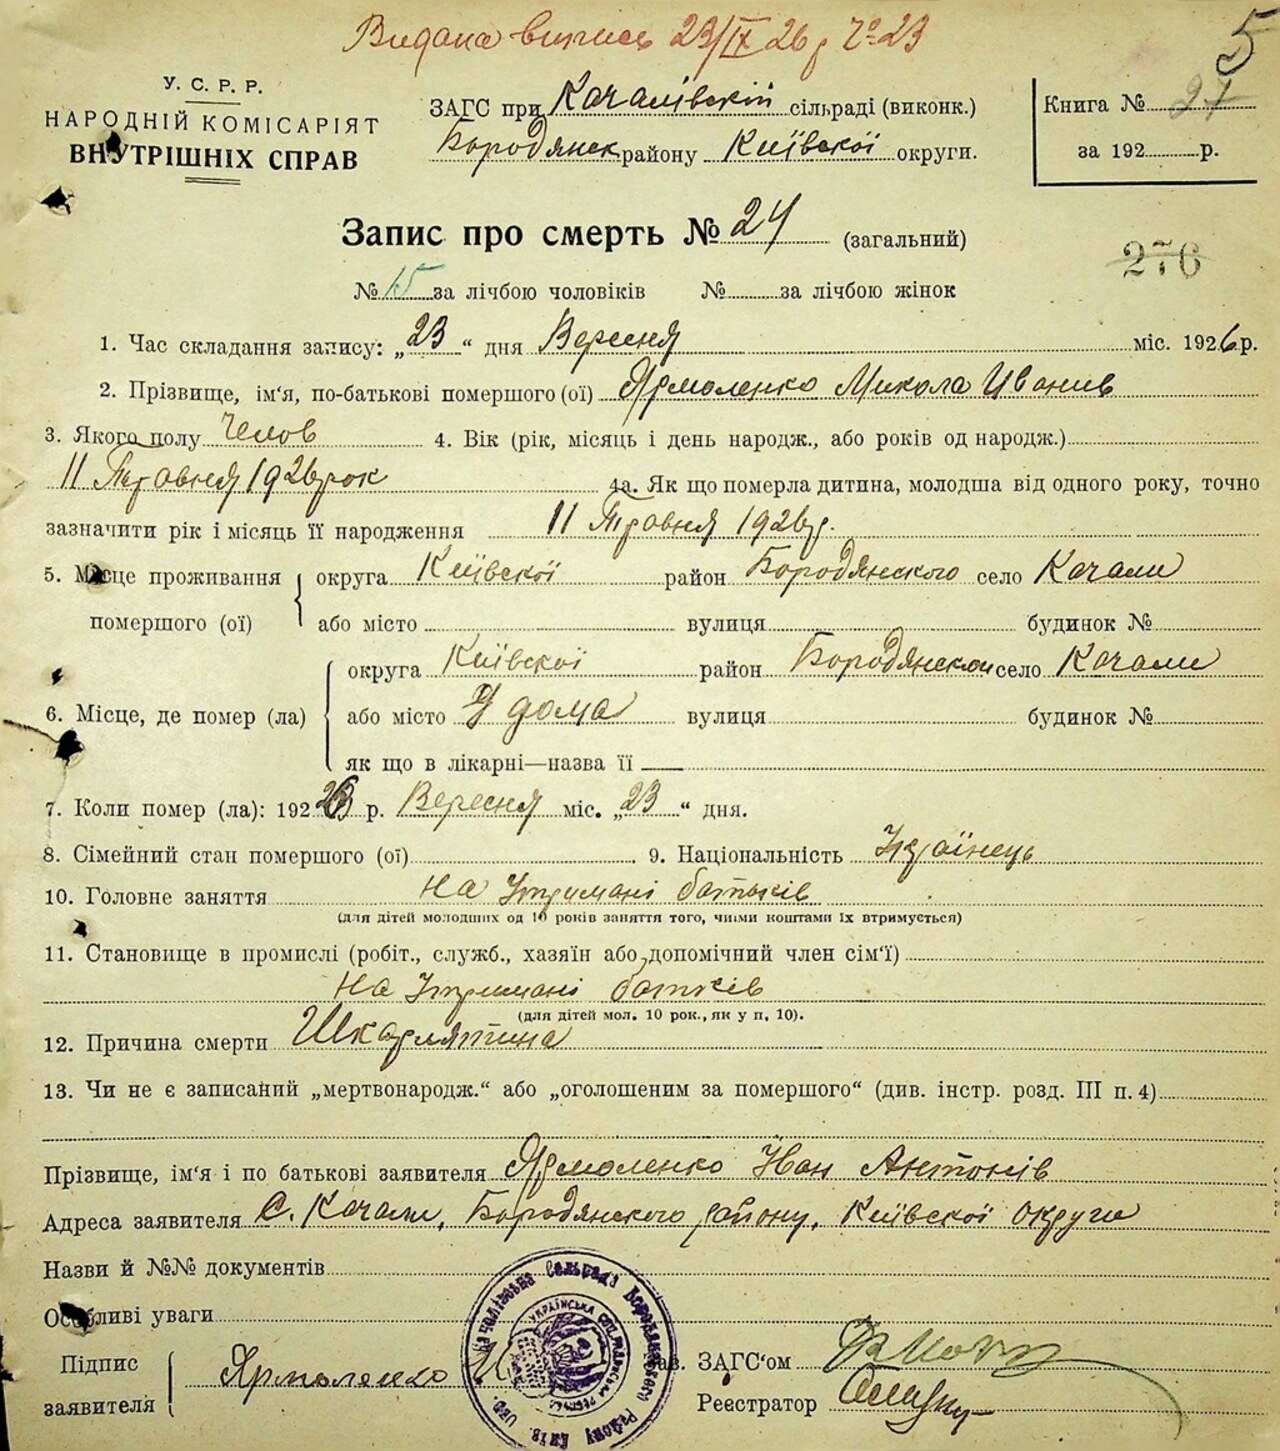 Видана випись 23/IX 26 р № 23
5
У. С. Р. Р.
НАРОДНІЙ КОМІСАРІЯТ
ВНУТРІШНІХ СПРАВ
ЗАГС при Качалівській сільраді (виконк.)
Бородянск району Київскої округи.
Книга № 27
за 192 р.
Запис про смерть № 24 (загальний)
276
№ 15 за лічбою чоловіків № за лічбою жінок
1. Час складання запису: „23“ дня Вересня міс. 1926 р.
2. Прізвище, ім'я, по-батькові помершого (ої) Ярмоленко Микола Іванів
3. Якого полу Челов 4. Вік (рік, місяць і день народж., або років од народж.)
11 Травня 1926 рок 4а. Як що померла дитина, молодша від одного року, точно
зазначити рік і місяць її народження 11 Травня 1926 р.
5. Місце проживання округа Київскої район Бородянского село Качали
помершого (ої) або місто вулиця будинок №
округа Київскої район Бородянской село Качали
6. Місце, де помер (ла) або місто У дома вулиця будинок №
як що в лікарні—назва її
7. Коли помер (ла): 1926 р. Вересня міс. „23“ дня.
8. Сімейний стан помершого (ої) 9. Національність Українець
10. Головне заняття на Утримані батьків
(для дітей молодших од 10 років заняття того, чиїми коштами їх втримується)
11. Становище в промислі (робіт., служб., хазяїн або допомічний член сім'ї)
на Утримані батьків
(для дітей мол. 10 рок., як у п. 10).
12. Причина смерти Шкарлятина
13. Чи не є записаний „мертвонародж.“ або „оголошеним за помершого“ (див. інстр. розд. III п. 4)
Прізвище, ім'я і по батькові заявителя Ярмоленко Іван Антонів
Адреса заявителя С. Качали, Бородянского району, Київскої округи
Назви й №№ документів
Особливі уваги
Підпис
заявителя
Ярмоленко И
Качалівська Сельрада Бородянського Району Київ.
УКРАЇНСЬКА СОЦ. РАДЯНСЬКА РЕСПУБ.
Зав. ЗАГС'ом
Реєстратор